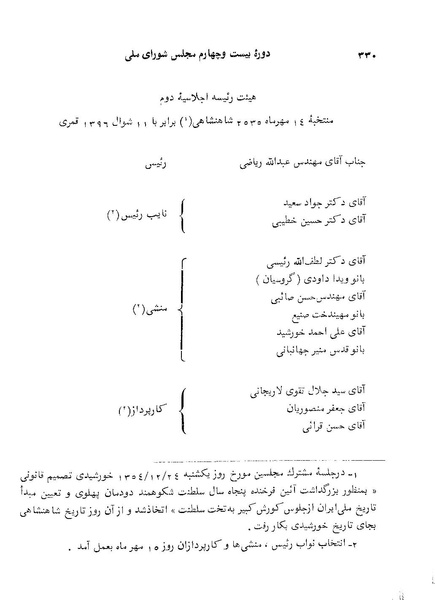 ۳۳۰ دورهٔ بیست وچهارم مجلس شورای ملی
هیئت رئیسه اجلاسیهٔ دوم
منتخبهٔ ۱۴ مهرماه ۲۵۳۵ شاهنشاهی(۱) برابر با ۱۱ شوال ۱۳۹۶ قمری
جناب آقای مهندس عبدالله ریاضی رئیس
آقای دکتر جواد سعید
آقای دکتر حسین خطیبی
نایب رئیس(۲)
آقای دکتر لطف‌الله رئیسی
بانو ویدا داودی (گروسیان)
آقای مهندس حسن صائبی
بانو مهیندخت صنیع
آقای علی احمد خورشید
بانو قدس منیر جهانبانی
منشی(۲)
آقای سید جلال تقوی لاریجانی
آقای جعفر منصوریان
آقای حسن قرائی
کارپرداز(۲)
۱ـ درجلسهٔ مشترک مجلسین مورخ روز یکشنبه ۱۳۵۴/۱۲/۲۴ خورشیدی تصمیم قانونی
« بمنظور بزرگداشت آئین فرخنده پنجاه سال سلطنت شکوهمند دودمان پهلوی و تعیین مبدأ
تاریخ ملی‌ایران ازجلوس کورش کبیر به‌تخت سلطنت » اتخاذشد و از آن روز تاریخ شاهنشاهی
بجای تاریخ خورشیدی بکار رفت.
۲ـ انتخاب نواب رئیس ، منشی‌ها و کارپردازان روز ۱۵ مهر ماه بعمل آمد .